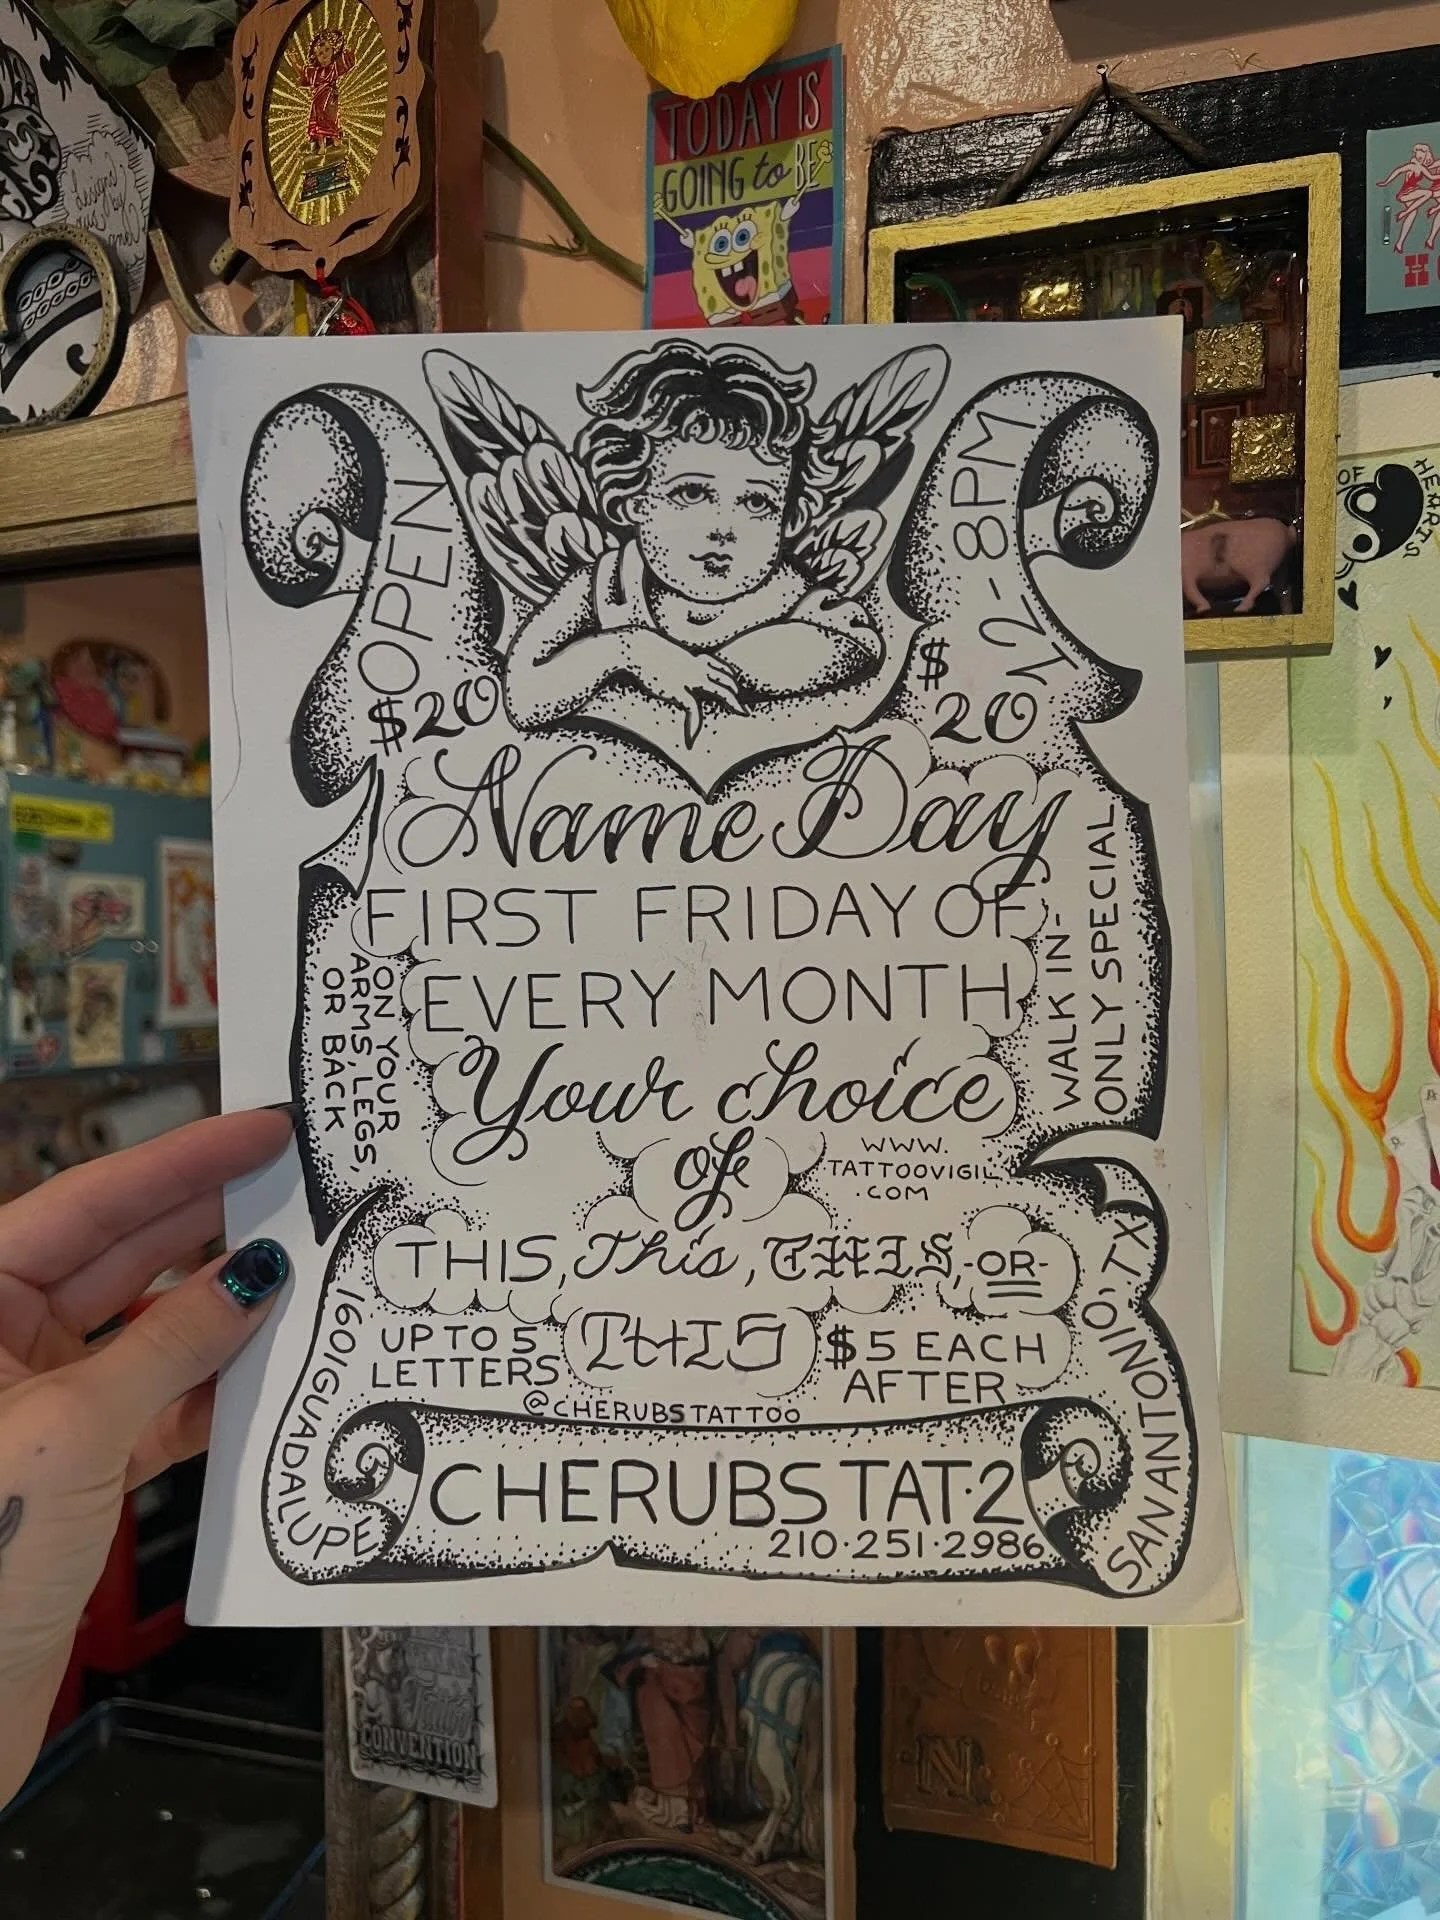 TODAY IS
GOING to BE
OF
HEARTS
OPEN
12-8PM
$20
$
20
Name Day
FIRST FRIDAY OF
EVERY MONTH
Your choice
of
ON YOUR
ARMS, LEGS,
OR BACK
WALK IN-
ONLY SPECIAL
WWW.
TATTOOVIGIL
.COM
THIS, This, THIS, -OR-
THIS
UP TO 5
LETTERS
$5 EACH
AFTER
@CHERUBSTATTOO
CHERUBS TAT·2
210·251·2986
1601 GUADALUPE
SAN ANTONIO, TX
CONVENTION
N